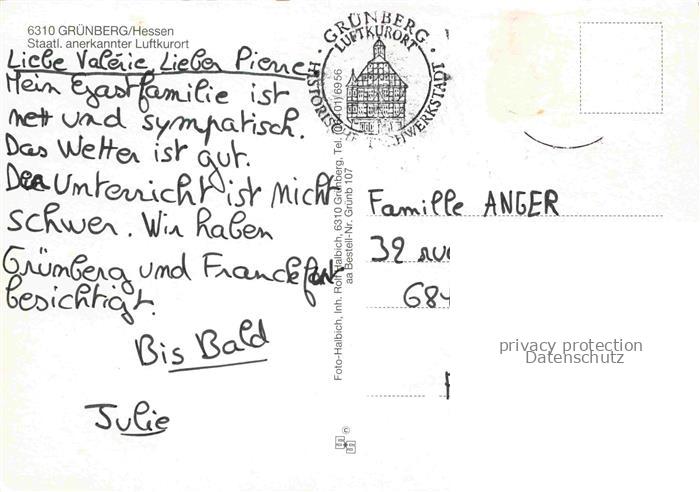 6310 GRÜNBERG/Hessen
Staatl. anerkannter Luftkurort
Liebe Valérie, Lieber Pierre
Mein Gastfamilie ist
nett und sympatisch.
Das Wetter ist gut.
Der Unterricht ist nicht
schwer. Wir haben
Grümberg und Franckfurt
besichtigt.
Bis Bald
Julie
· GRÜNBERG ·
LUFTKURORT
HISTORISCHE FACHWERKSTADT
Foto-Halbich, Inh. Rolf Halbich, 6310 Grünberg, Tel. 01/6956
aa Bestell-Nr. Grünb 107
©
Famille ANGER
39 rue
684
privacy protection
Datenschutz